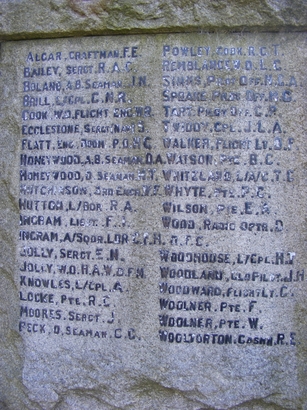 ALGAR, CRAFTMAN, F.E.
BAILEY, SERGT, R.A.C.
BOLAND, A.B. SEAMAN, J.N.
BRILL, L/CPL, C.N.R.
COOK, W.D. FLIGHT ENGNR.
ECCLESTONE, SERGT,
FLATT, ENG. ROOM P.O. W.C.
HONEYWOOD, A.B. SEAMAN, D.A.
HONEYWOOD, O. SEAMAN, R.T.
HUTCHINSON, 3RD ENGR,
HUTTON, L/BOR, R.A.
INGRAM, LIEUT, F.J.
INGRAM, A/SQDR LDR C.F.H. D.F.C.
JOLLY, SERGT, E.N.
JOLLY, W.O. H.A.W. D.F.M.
KNOWLES, L/CPL, G.
LOCKE, PTE, R.G.
MOORES, SERGT, J.
PECK, O, SEAMAN, C.C.
POWLEY, COOK, R.C.T.
REMBLANCE, W.O. L.C.
SINKS, PILOT OFF.
SPEAKE, PILOT OFF.
TART, PILOT OFF. C.R.
TWIDDY, CPL, J.L.A.
WALKER, FLIGHT LT, D.F.
WATSON, PTE, B.C.
WHITELAND, L/A/C, T.E.
WHYTE, PTE, D.C.
WILSON, PTE, E.G.
WOOD, RADIO OPTR, D.
WOODHOUSE, L/CPL, H.V
WOODLAND, GLD PILOT, J.H
WOODWARD, FLIGHT LT, C.
WOOLNER, PTE, F
WOOLNER, PTE, W.
WOOLTORTON, GDSMN, R.S